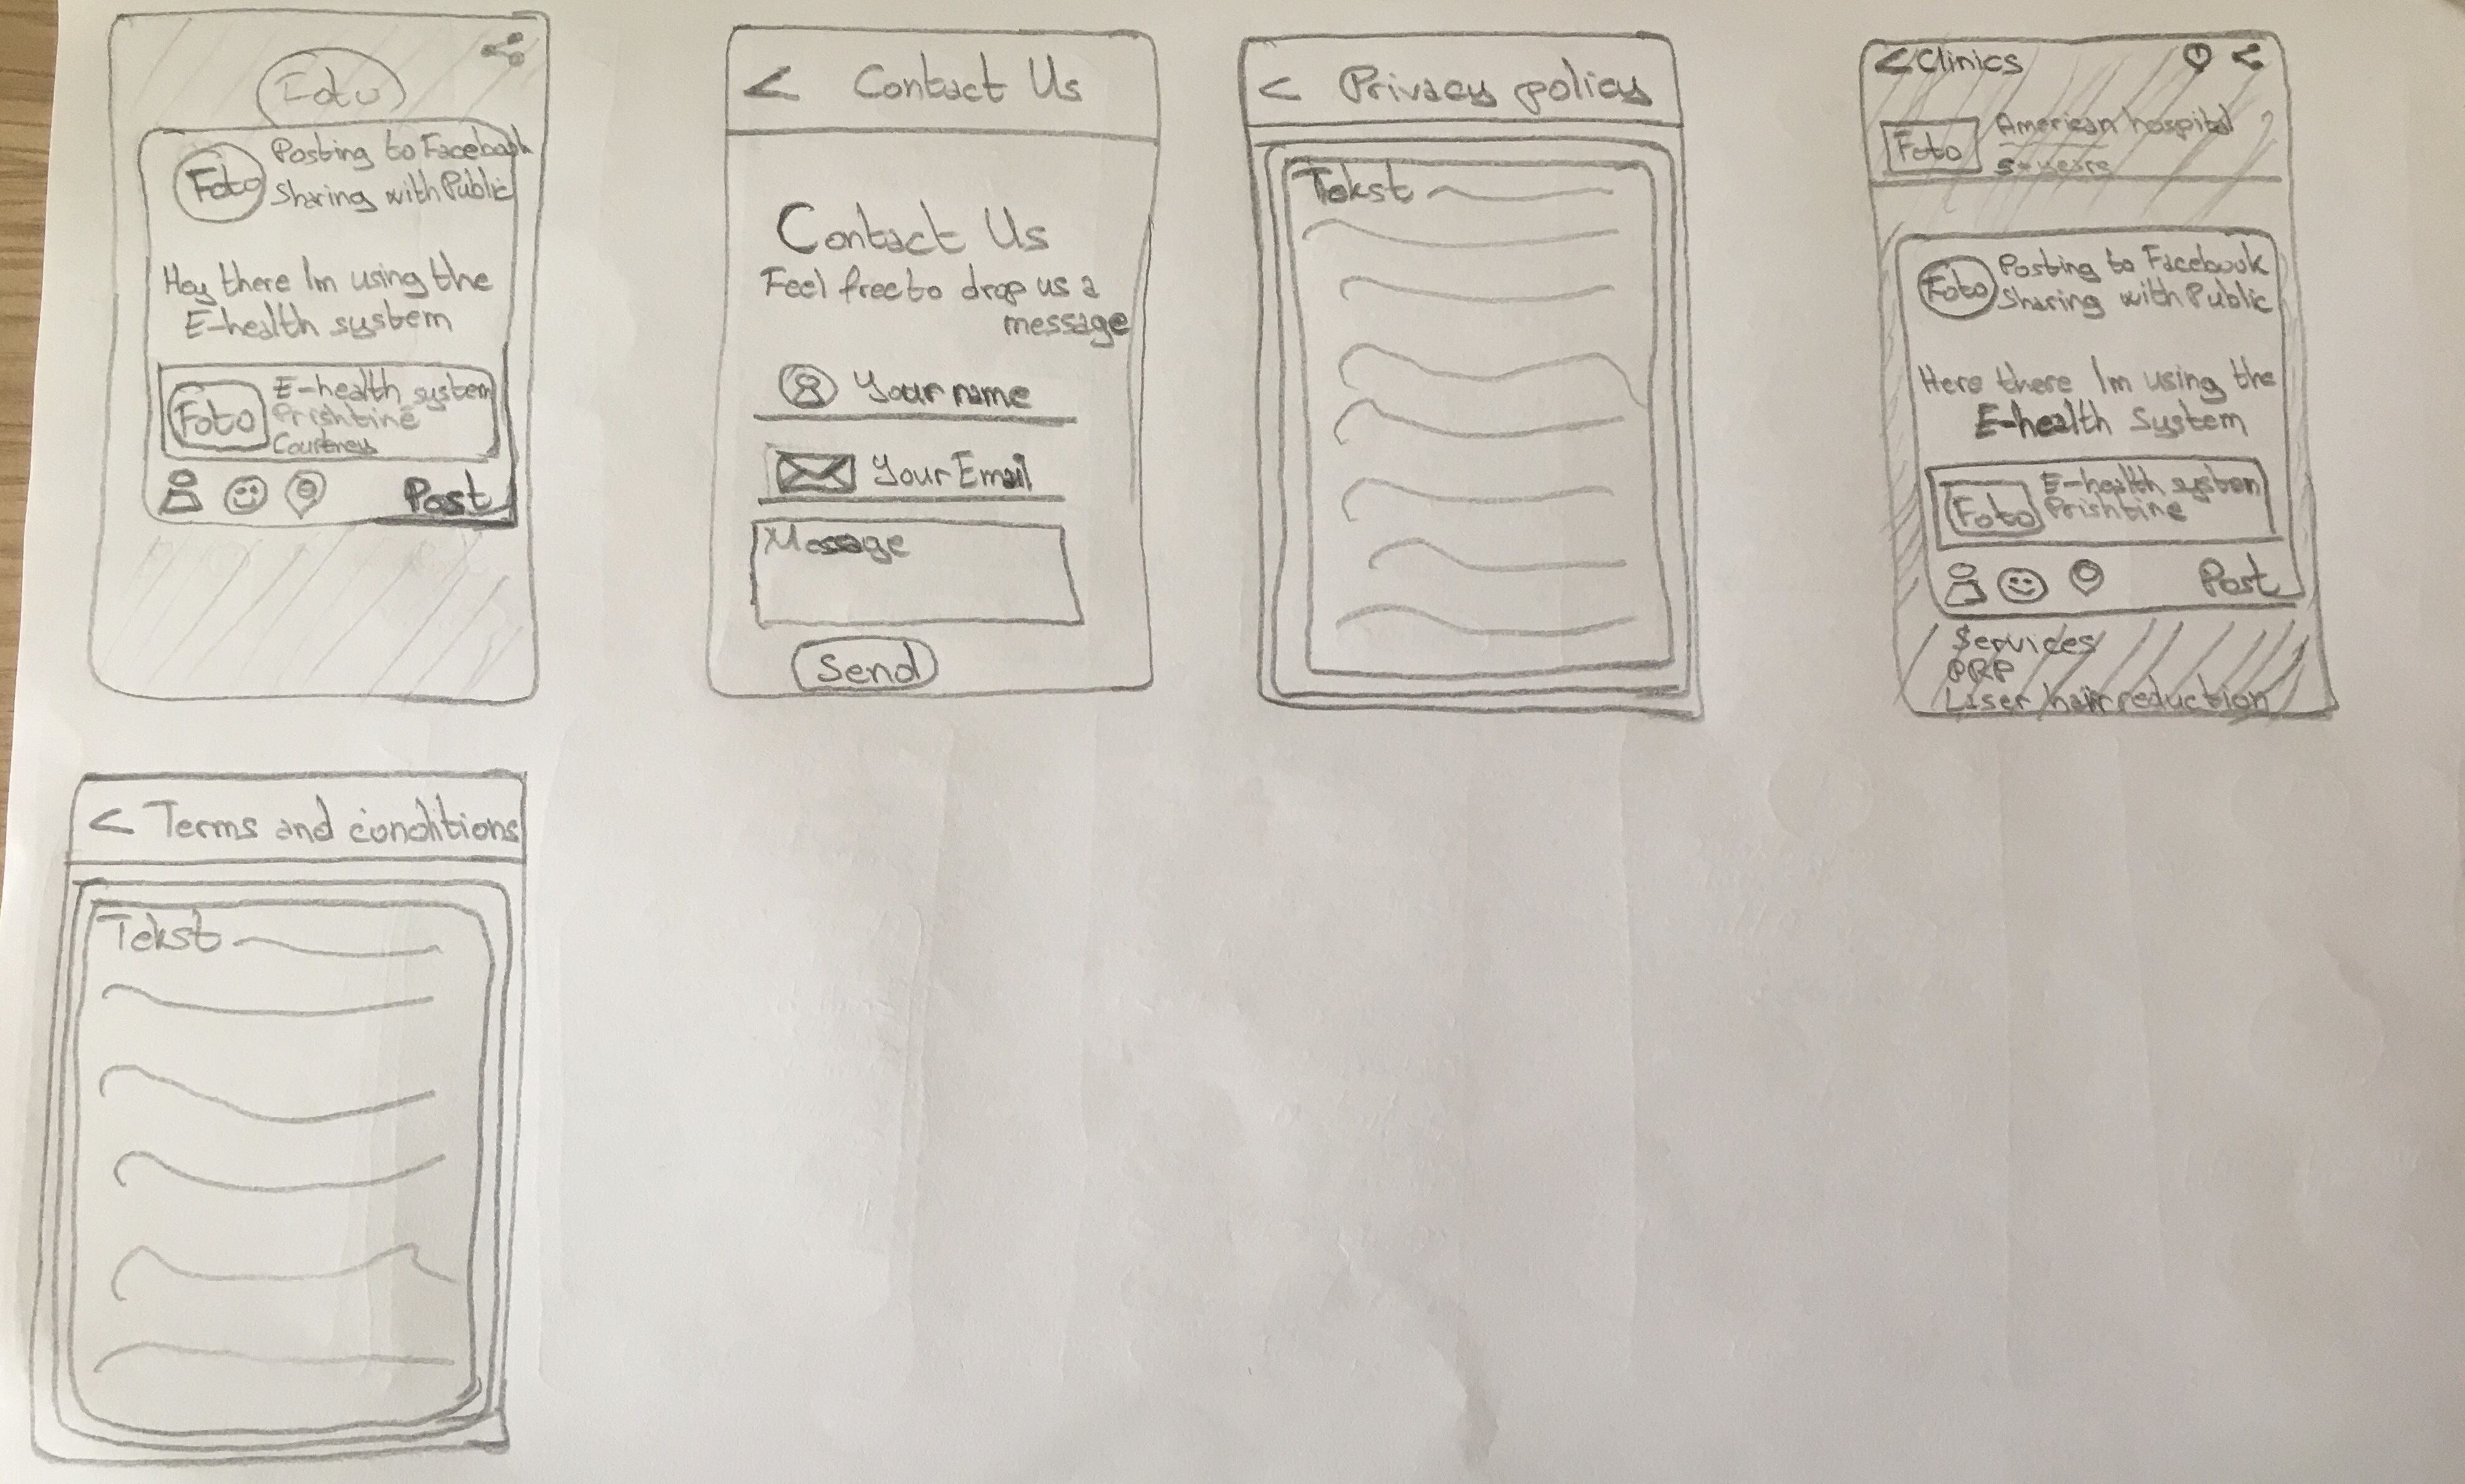 Foto
Foto
Posting to Facebook
Sharing with Public
Hey there Im using the
E-health system
Foto
E-health system
Prishtinë
Post
Contact Us
Contact Us
Feel free to drop us a
message
Your name
Your Email
Message
Send
Privacy policy
Tekst
Clinics
Foto
American hospital
5-years
Foto
Posting to Facebook
Sharing with Public
Here there Im using the
E-health System
Foto
E-health system
Prishtine
Post
Services
PRP
Liser hair reduction
Terms and conditions
Tekst